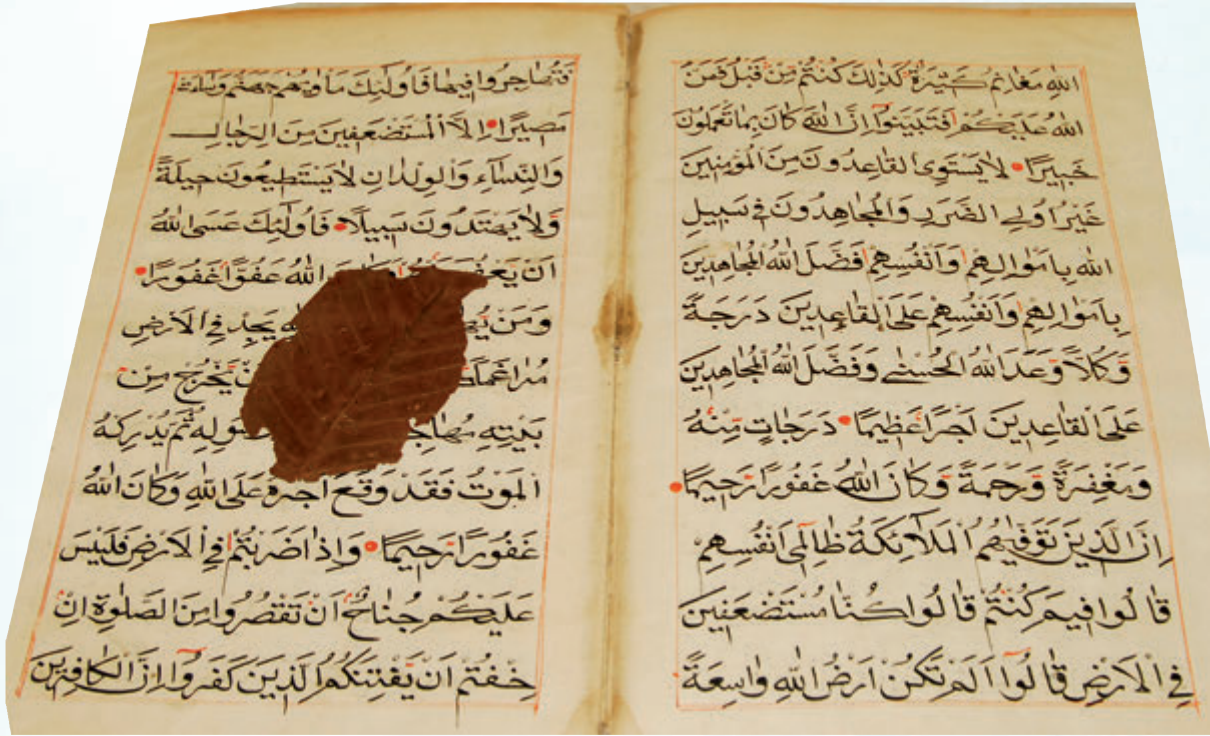 اللهِ مَغَانِمُ كَثِيرَةٌ كَذٰلِكَ كُنْتُمْ مِنْ قَبْلُ فَمَنَّ
اللهُ عَلَيْكُمْ فَتَبَيَّنُوٓا اِنَّ اللهَ كَانَ بِمَا تَعْمَلُونَ
خَبِيرًا لَا يَسْتَوِى الْقَاعِدُونَ مِنَ الْمُؤْمِنِينَ
غَيْرُ اُولِى الضَّرَرِ وَالْمُجَاهِدُونَ فِى سَبِيلِ
اللهِ بِاَمْوَالِهِمْ وَاَنْفُسِهِمْ فَضَّلَ اللهُ الْمُجَاهِدِينَ
بِاَمْوَالِهِمْ وَاَنْفُسِهِمْ عَلَى الْقَاعِدِينَ دَرَجَةً
وَكُلًّا وَعَدَ اللهُ الْحُسْنٰى وَفَضَّلَ اللهُ الْمُجَاهِدِينَ
عَلَى الْقَاعِدِينَ اَجْرًا عَظِيمًا دَرَجَاتٍ مِنْهُ
وَمَغْفِرَةً وَرَحْمَةً وَكَانَ اللهُ غَفُورًا رَحِيمًا
اِنَّ الَّذِينَ تَوَفّٰيهُمُ الْمَلَآئِكَةُ ظَالِمِٓى اَنْفُسِهِمْ
قَالُوا فِيمَ كُنْتُمْ قَالُوا كُنَّا مُسْتَضْعَفِينَ
فِى الْاَرْضِ قَالُوٓا اَلَمْ تَكُنْ اَرْضُ اللهِ وَاسِعَةً
فَتُهَاجِرُوا فِيهَا فَاُولٰٓئِكَ مَاْوٰيهُمْ جَهَنَّمُ وَسَآءَتْ
مَصِيرًا اِلَّا الْمُسْتَضْعَفِينَ مِنَ الرِّجَالِ
وَالنِّسَآءِ وَالْوِلْدَانِ لَا يَسْتَطِيعُونَ حِيلَةً
وَلَا يَهْتَدُونَ سَبِيلًا فَاُولٰٓئِكَ عَسَى اللهُ
اَنْ يَعْفُوَ اللهُ عَفُوًّا غَفُورًا
وَمَنْ يَجِدْ فِى الْاَرْضِ
مُرَاغَمًا يَخْرُجْ مِنْ
بَيْتِهِ مُهَاجِرًا ثُمَّ يُدْرِكْهُ
الْمَوْتُ فَقَدْ وَقَعَ اَجْرُهُ عَلَى اللهِ وَكَانَ اللهُ
غَفُورًا رَحِيمًا وَاِذَا ضَرَبْتُمْ فِى الْاَرْضِ فَلَيْسَ
عَلَيْكُمْ جُنَاحٌ اَنْ تَقْصُرُوا مِنَ الصَّلٰوةِ اِنْ
خِفْتُمْ اَنْ يَفْتِنَكُمُ الَّذِينَ كَفَرُوٓا اِنَّ الْكَافِرِينَ